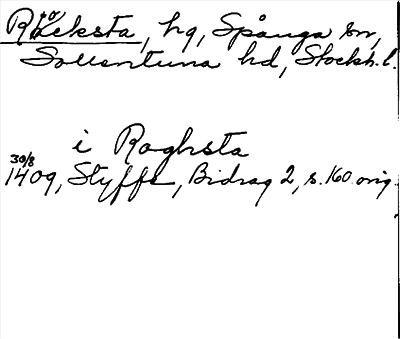 Råcksta, hg, Spånga sn,
Sollentuna hd, Stockh. l.
i Roghsta
30/8
1409, Styffe, Bidrag 2, s. 160 orig.